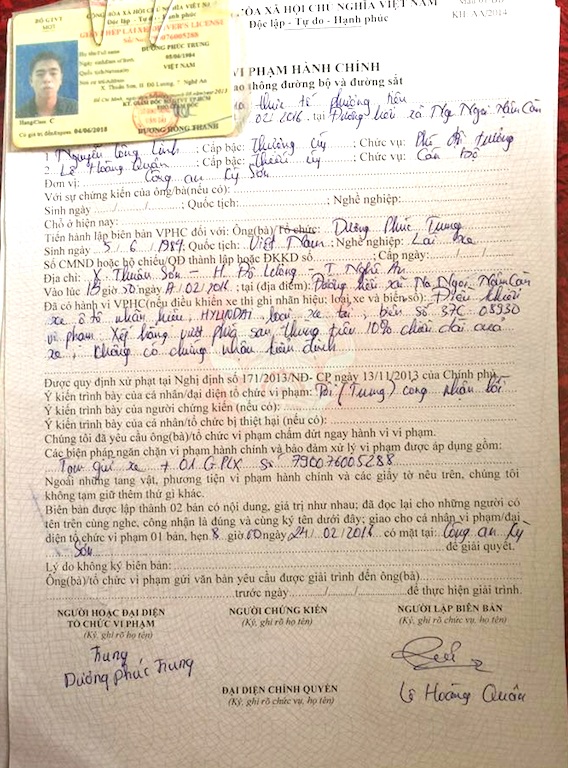 BỘ GTVT
CỘNG HÒA XÃ HỘI CHỦ NGHĨA VIỆT NAM
Độc lập - Tự do - Hạnh phúc
GIẤY PHÉP LÁI XE/DRIVER'S LICENSE
DƯƠNG PHÚC TRUNG
VIỆT NAM
X. Thuận Sơn, H. Đô Lương, T. Nghệ An
Hạng/Class C
Có giá trị đến/Expires 04/06/2018
DƯƠNG HỒNG THANH
HÒA XÃ HỘI CHỦ NGHĨA VIỆT NAM
Độc lập - Tự do - Hạnh phúc
KH: AA/2014
VI PHẠM HÀNH CHÍNH
giao thông đường bộ và đường sắt
02/2016. tại Đường
1. Nguyễn Công Lình : Cấp bậc: Thượng úy : Chức vụ: Phó đội trưởng
2. Lê Hoàng Quân : Cấp bậc: Thiếu úy : Chức vụ: Cán bộ
Đơn vị: Công an Kỳ Sơn
Với sự chứng kiến của ông/bà(nếu có):
Sinh ngày / / ; Quốc tịch: ; Nghề nghiệp:
Chỗ ở hiện nay:
Tiến hành lập biên bản VPHC đối với: Ông(bà)/Tổ chức: Dương Phúc Trung
Sinh ngày 5 / 6 /1984; Quốc tịch: Việt Nam; Nghề nghiệp: Lái xe
Số CMND hoặc hộ chiếu/QĐ thành lập hoặc ĐKKD số ; Cấp ngày / /
Địa chỉ: X. Thuận Sơn - H. Đô Lương - T. Nghệ An
Vào lúc giờ 30 ngày / 02 / 2016 ; tại (địa điểm): Đường
Đã có hành vi VPHC(nếu điều khiển xe thì ghi nhãn hiệu; loại xe và biển số): Điều khiển
xe ô tô nhãn hiệu HYUNDAI loại xe tải, biển số 37C 08930
vi phạm: Xếp hàng vượt phía sau thùng trên 10% chiều dài của
xe, không có chứng nhận kiểm định
Được quy định xử phạt tại Nghị định số 171/2013/NĐ- CP ngày 13/11/2013 của Chính phủ.
Ý kiến trình bày của cá nhân/đại diện tổ chức vi phạm: Tôi (Trung) công nhận lỗi
Ý kiến trình bày của người chứng kiến (nếu có):
Ý kiến trình bày của cá nhân/tổ chức bị thiệt hại (nếu có):
Chúng tôi đã yêu cầu ông(bà)/tổ chức vi phạm chấm dứt ngay hành vi vi phạm.
Các biện pháp ngăn chặn vi phạm hành chính và bảo đảm xử lý vi phạm được áp dụng gồm:
Tạm giữ xe + 01 GPLX số 790076005288
Ngoài những tang vật, phương tiện vi phạm hành chính và các giấy tờ nêu trên, chúng tôi
không tạm giữ thêm thứ gì khác.
Biên bản được lập thành 02 bản có nội dung, giá trị như nhau; đã đọc lại cho những người có
tên trên cùng nghe, công nhận là đúng và cùng ký tên dưới đây; giao cho cá nhân vi phạm/đại
diện tổ chức vi phạm 01 bản, hẹn 8 giờ 00 ngày 24 / 02 / 2016 có mặt tại: Công an Kỳ
Sơn để giải quyết.
Lý do không ký biên bản:
Ông(bà)/tổ chức vi phạm gửi văn bản yêu cầu được giải trình đến ông(bà)
trước ngày / / để thực hiện giải trình.
NGƯỜI HOẶC ĐẠI DIỆN
TỔ CHỨC VI PHẠM
(Ký, ghi rõ họ tên)
NGƯỜI CHỨNG KIẾN
(Ký, ghi rõ họ tên)
NGƯỜI LẬP BIÊN BẢN
(Ký, ghi rõ họ tên)
Trung
Dương Phúc Trung
Lê Hoàng Quân
ĐẠI DIỆN CHÍNH QUYỀN
(Ký, ghi rõ chức vụ, họ tên)